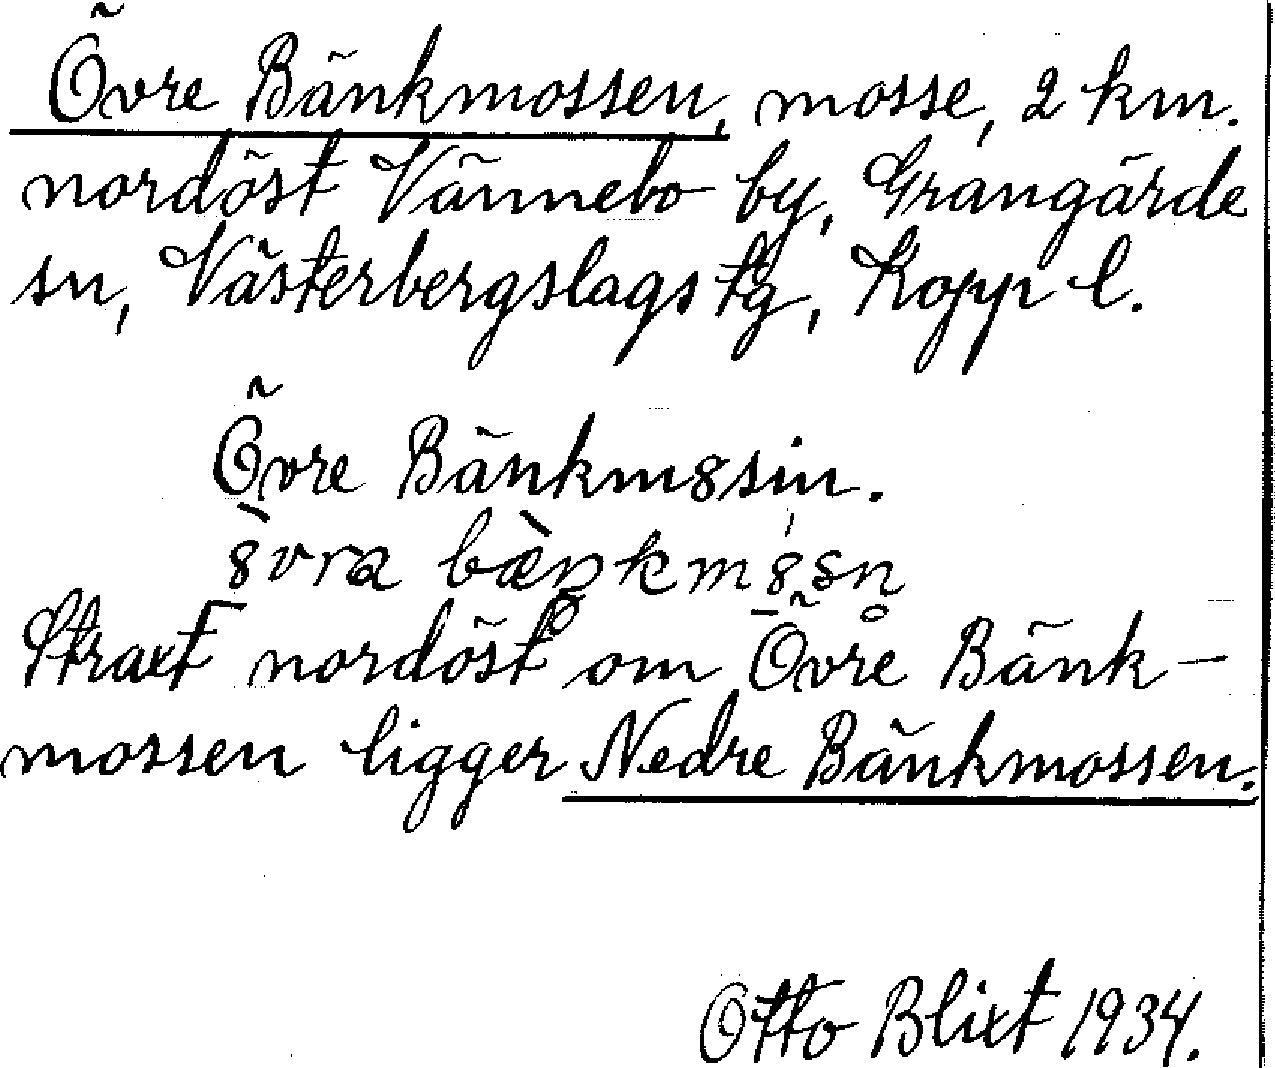 Övre Bänkmossen, mosse, 2 km.
nordöst Vännebo by, Grangärde
sn, Västerbergslags tg, Kopp l.
Övre Bänkm8sin.
8̀vra bæ̀ŋkm8sn̥
Straxt nordöst om Övre Bänk-
mossen ligger Nedre Bänkmossen.
Otto Blixt 1934.